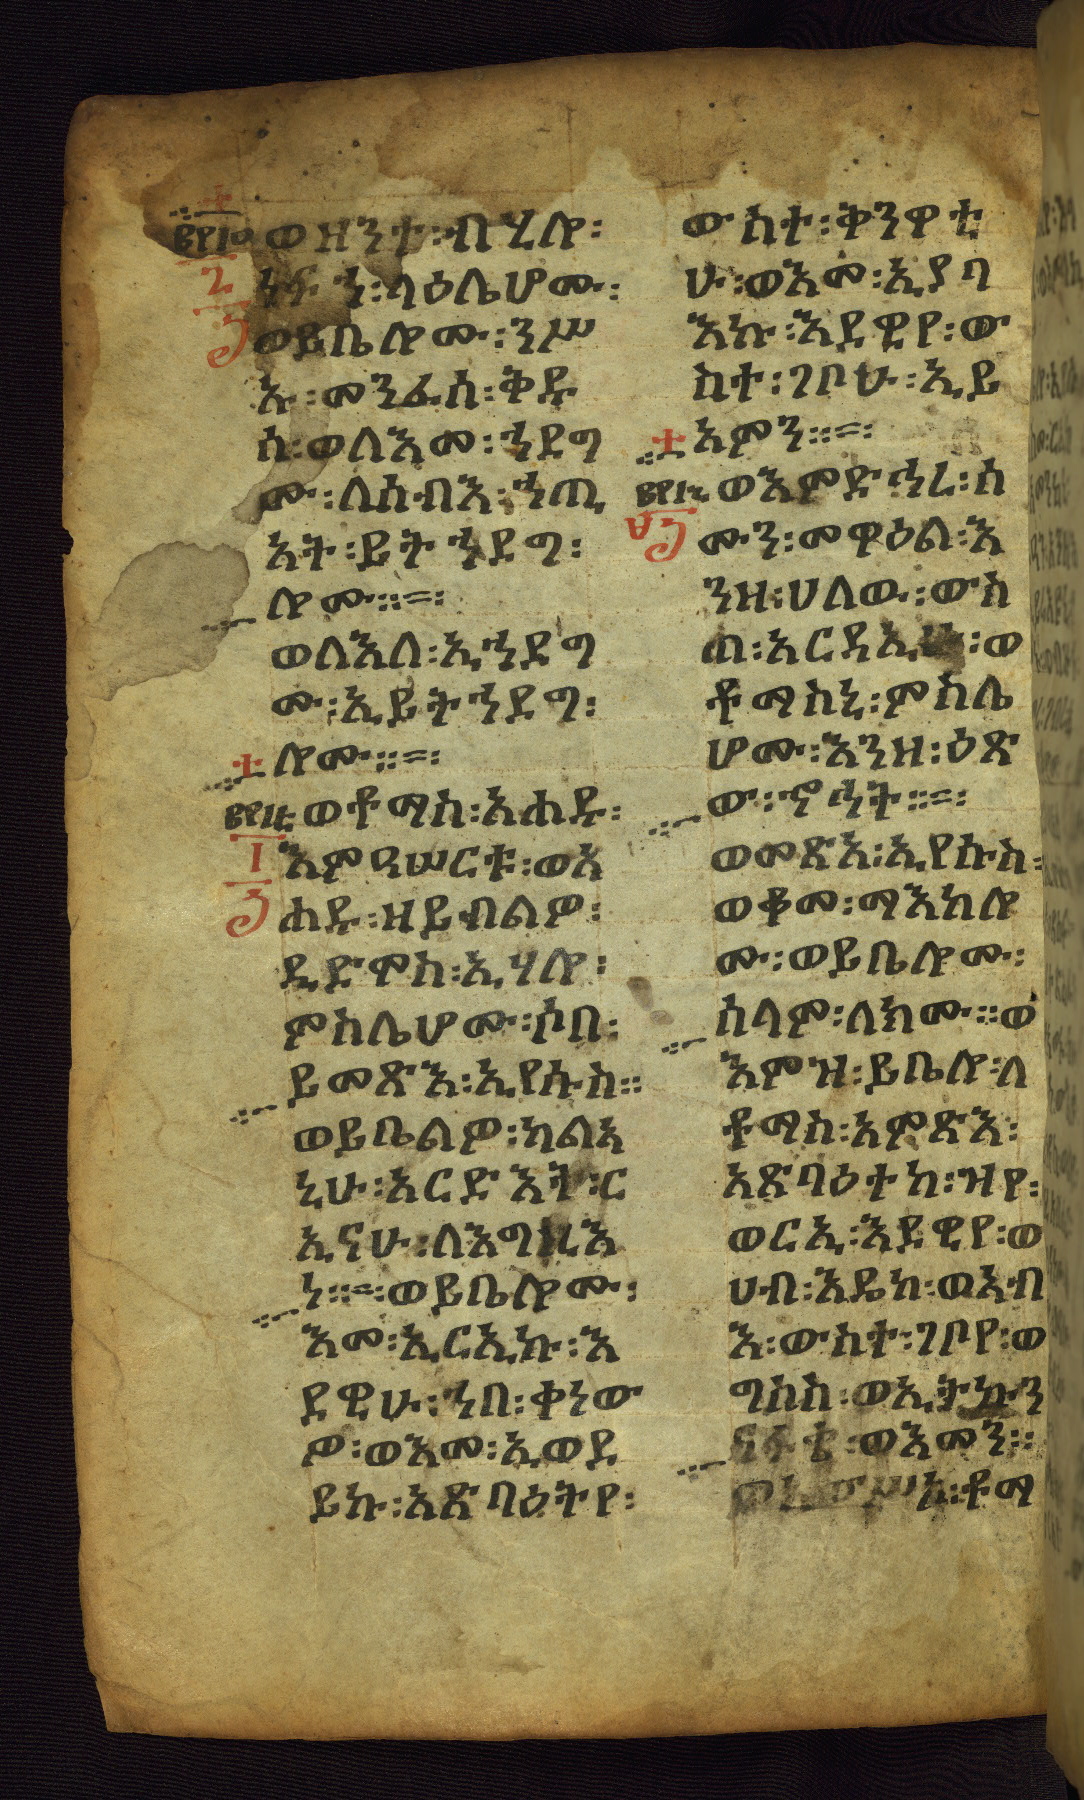 ወዝንተ፡ብሂሎ፡
ነፍኀ፡ላዕሌሆሙ፡
ወይቤሎሙ፡ንሥ
ኡ፡መንፈስ፡ቅዱ
ስ፡ወለእመ፡ኀደግ
ሙ፡ለሰብእ፡ኀጢ
አት፡ይትኀደግ፡
ሎሙ።=፡
ወለእለ፡ኢኀደግ
ሙ፡ኢይትኀደግ፡
ሎሙ።=፡
ወቶማስ፡አሐዱ፡
እምዓሠርቱ፡ወአ
ሐዱ፡ዘይብልዎ፡
ዲድሞስ፡ኢሃሎ፡
ምስሌሆሙ፡ሶበ፡
ይመጽእ፡ኢየሱስ።
ወይቤልዎ፡ካልኣ
ኒሁ፡አርድእት፡ር
ኢናሁ፡ለእግዚእ
ነ።=፡ወይቤሎሙ፡
እመ፡ኢርኢኩ፡እ
ደዊሁ፡ኀበ፡ቀነው
ዎ፡ወእመ፡ኢወደ
ይኩ፡አጽባዕትየ፡
ውስተ፡ቅንዋቲ
ሁ፡ወእመ፡ኢያባ
እኩ፡እደዊየ፡ው
ስተ፡ገቦሁ፡ኢይ
አምን።=፡
ወእምድኅረ፡ሰ
ሙን፡መዋዕል፡እ
ንዘ፡ሀለዉ፡ውስ
ጠ፡አርዳኢሁ፡ወ
ቶማስኒ፡ምስሌ
ሆሙ፡እንዘ፡ዕጽ
ው፡ኆኅት።=፡
ወመጽአ፡ኢየሱስ፡
ወቆመ፡ማእከሎ
ሙ፡ወይቤሎሙ፡
ሰላም፡ለክሙ።ወ
እምዝ፡ይቤሎ፡ለ
ቶማስ፡አምጽእ፡
አጽባዕተከ፡ዝየ፡
ወርኢ፡እደዊየ፡ወ
ሀብ፡እዴከ፡ወኣብ
እ፡ውስተ፡ገቦየ፡ወ
ግስስ፡ወኢትኩን
ናፋቂ፡ወእመን።
ቶማ